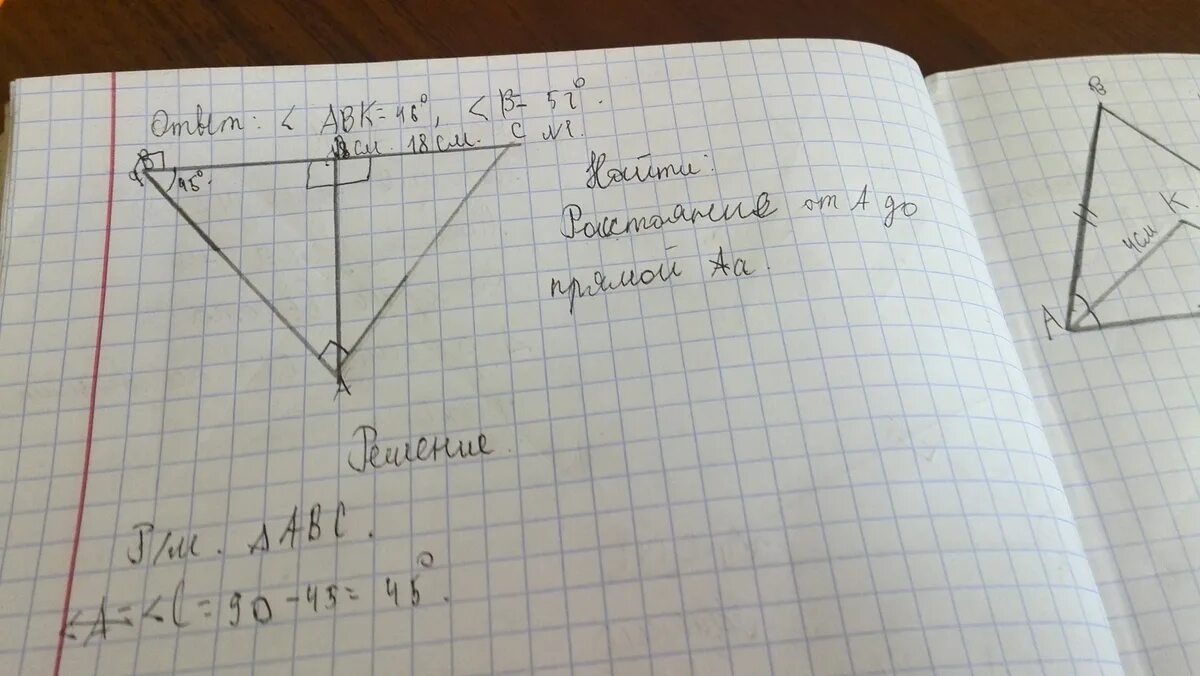 Ответ: < ABK=46°, < B= 52°.
B
18см. 18см. C №2.
45°
A
Найти:
Расстояние от A до
прямой Aa.
Решение.
Р/м. ΔABC.
<A=<C=90-45=45°.
B
K
4см
A